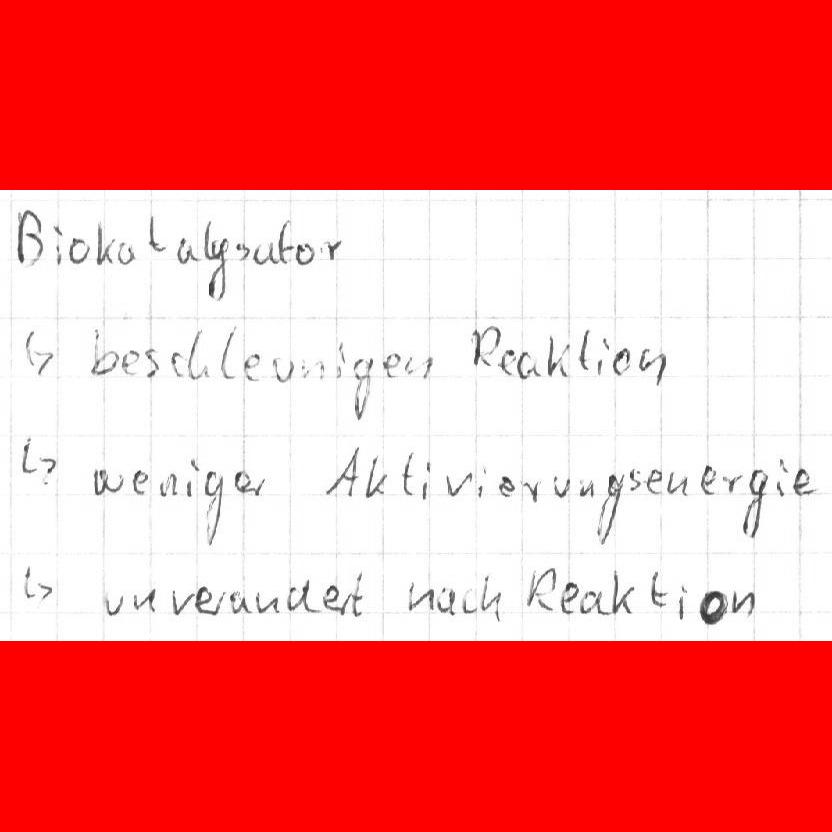 Biokatalysator
↳ beschleunigen Reaktion
↳ weniger Aktivierungsenergie
↳ unverandert nach Reaktion